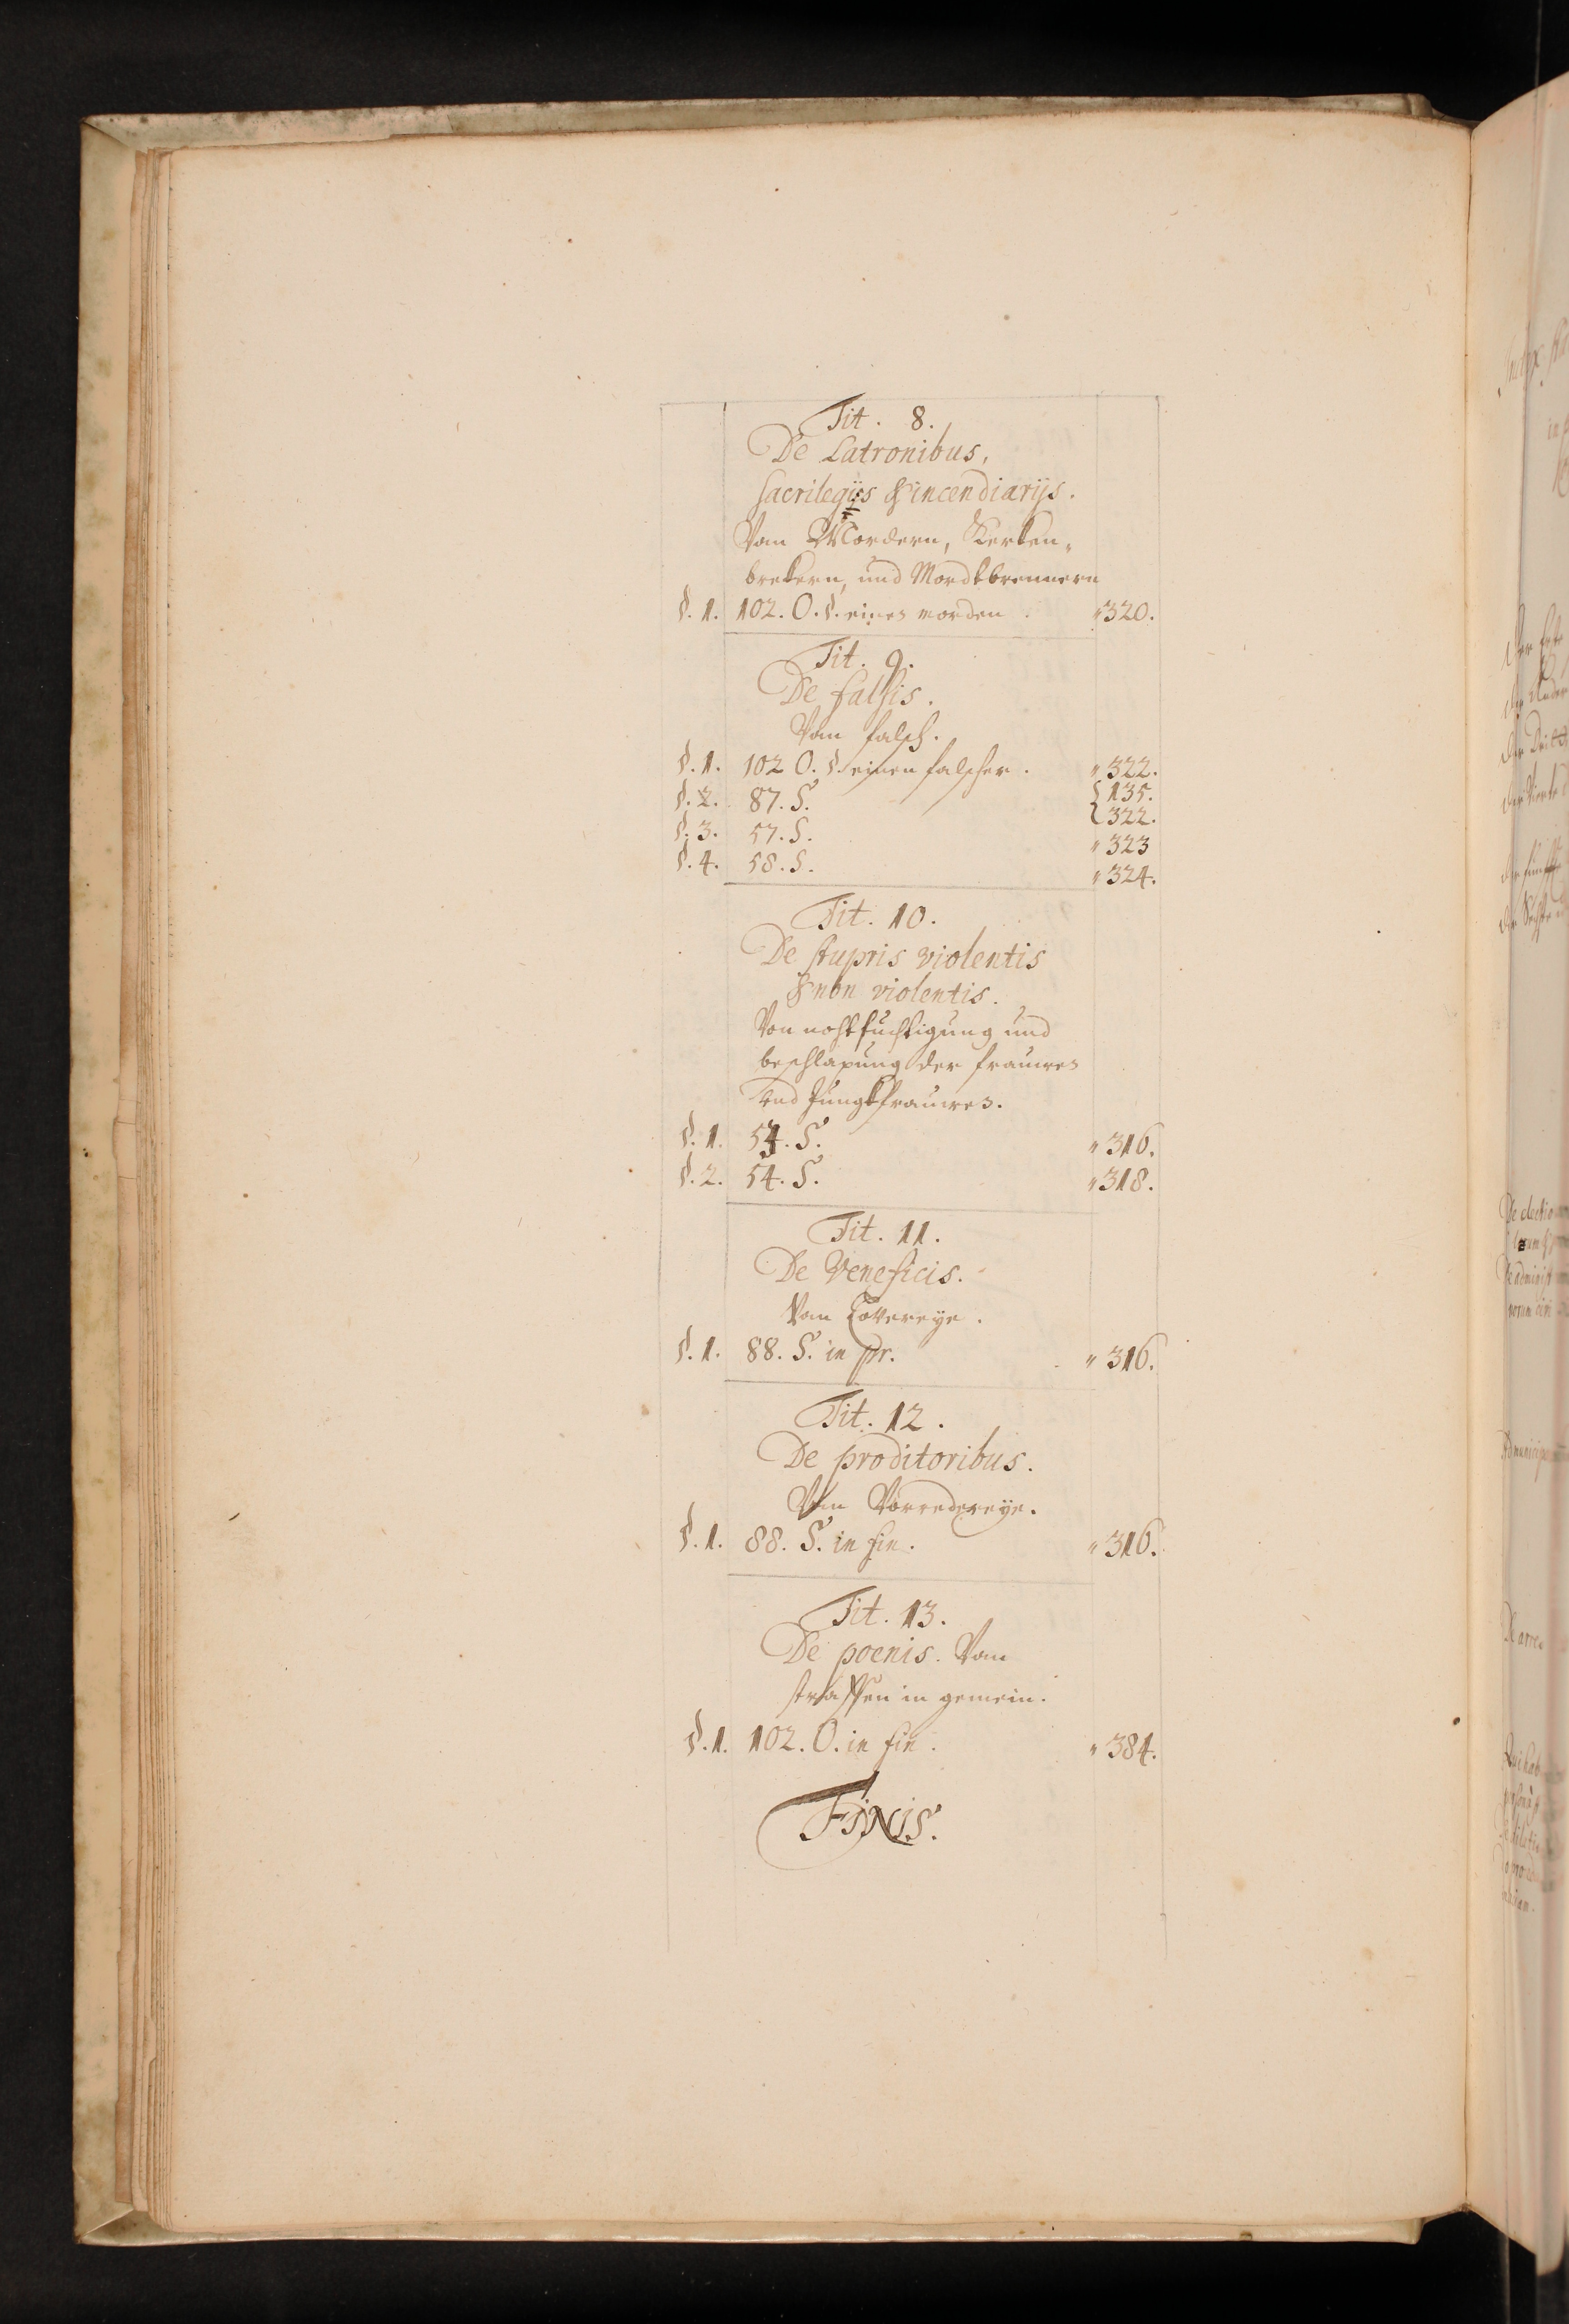 Tit. 8.
De Latronibus,
sacrilegijs & incendiarijs.
Van Mordern, Kerken-
brekern, und Mordtbrennern
§. 1. 102. O. §. einen morden. " 320.
Tit. 9.
De falsis.
Van falsch.
§. 1. 102 O. §. einen falscher. " 322.
§. 2. 87. S. { 135.
{ 322.
§. 3. 57. S. " 323
§. 4. 58. S. " 324.
Tit. 10.
De stupris violentis
& non violentis.
Von nohttuchtigung und
beschlapung der frauwen
und Jungkfrauwen.
§. 1. S. " 316.
§. 2. 54. S. " 318.
Tit. 11.
De Veneficis.
Van Tovereye.
§. 1. 88. S. in pr. " 316.
Tit. 12.
De proditoribus.
Van Vorredereye.
§. 1. 88. S. in fin. " 316.
Tit. 13.
De poenis. Van
straffen in gemein.
§. 1. 102. O. in fin. " 384.
FINIS.